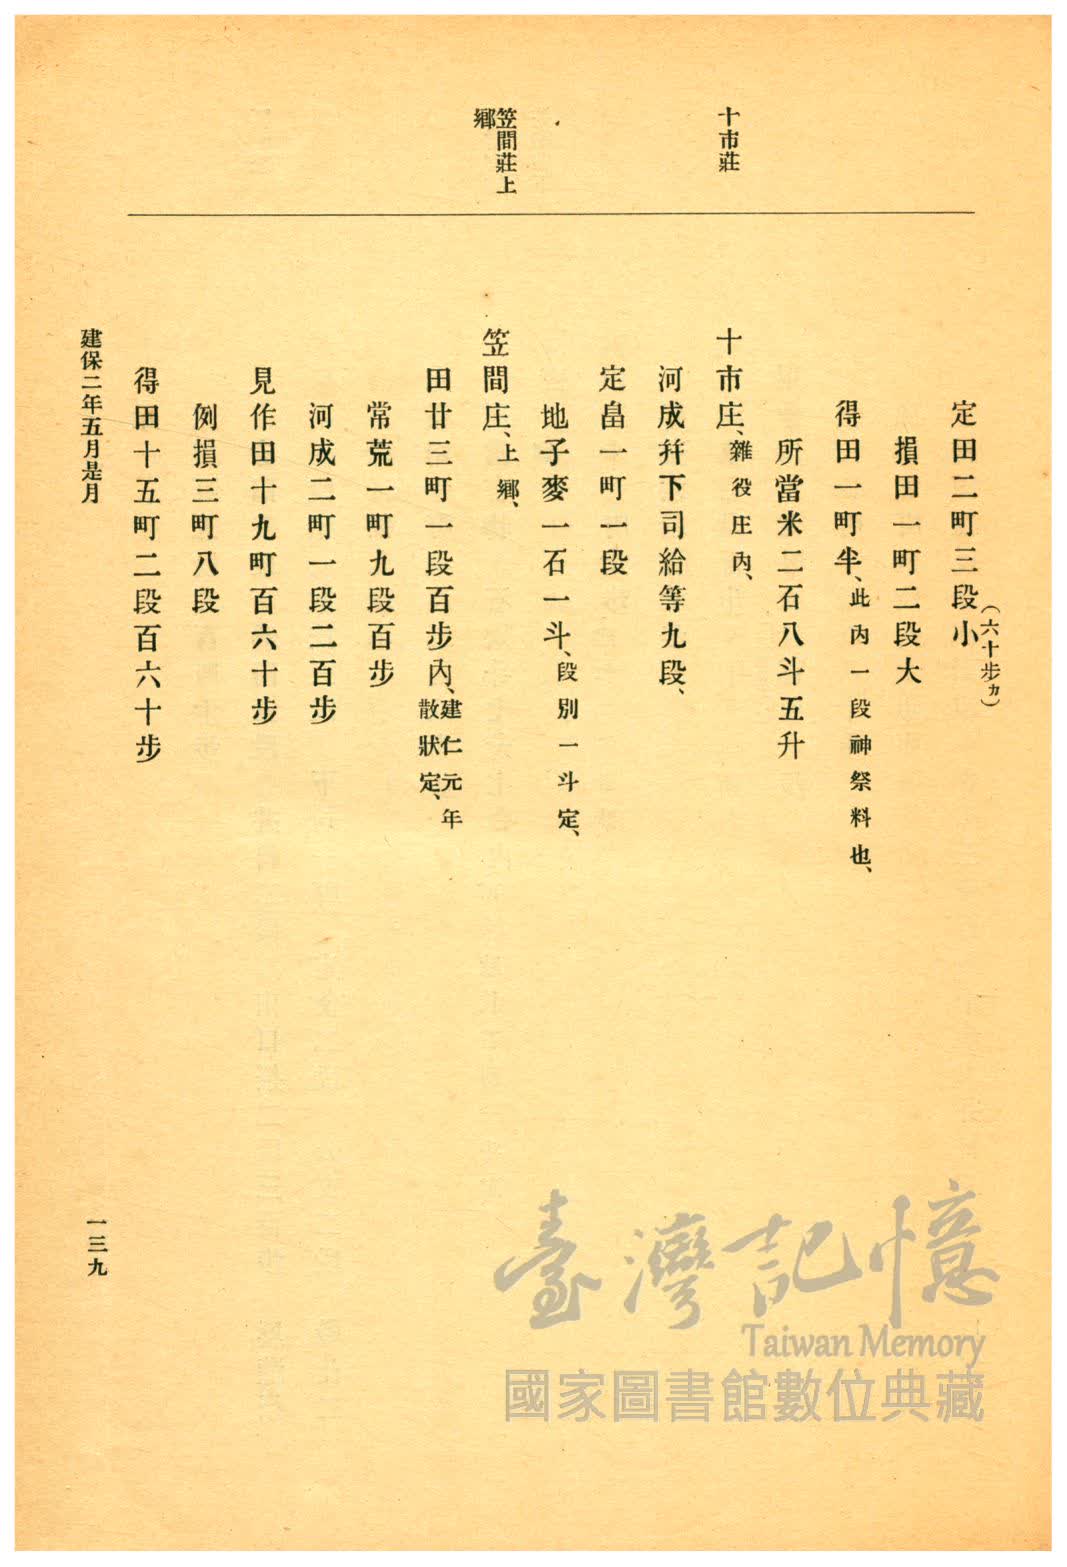 十市莊
笠間莊上
鄉
定田二町三段小
（六十步カ）
損田一町二段大
得田一町半、此內一段神祭料也、
所當米二石八斗五升
十市庄、雜役庄內、
河成幷下司給等九段、
定畠一町一段
地子麥一石一斗、段別一斗定、
笠間庄、上鄉、
田廿三町一段百步內、建仁元年
散狀定、
常荒一町九段百步
河成二町一段二百步
見作田十九町百六十步
例損三町八段
得田十五町二段百六十步
建保二年五月是月
一三九
臺灣記憶
Taiwan Memory
國家圖書館數位典藏